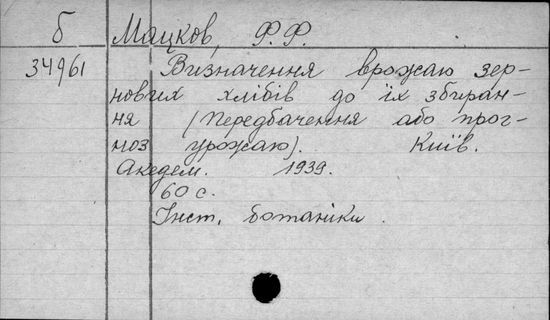 б Мацков, Ф.Ф.
34961 Визначення врожаю зер-
нових хлібів до їх збиран-
ня (Передбачення або прог-
ноз урожаю). Київ.
Акедем. 1939.
60 с.
Інст. ботаніки.